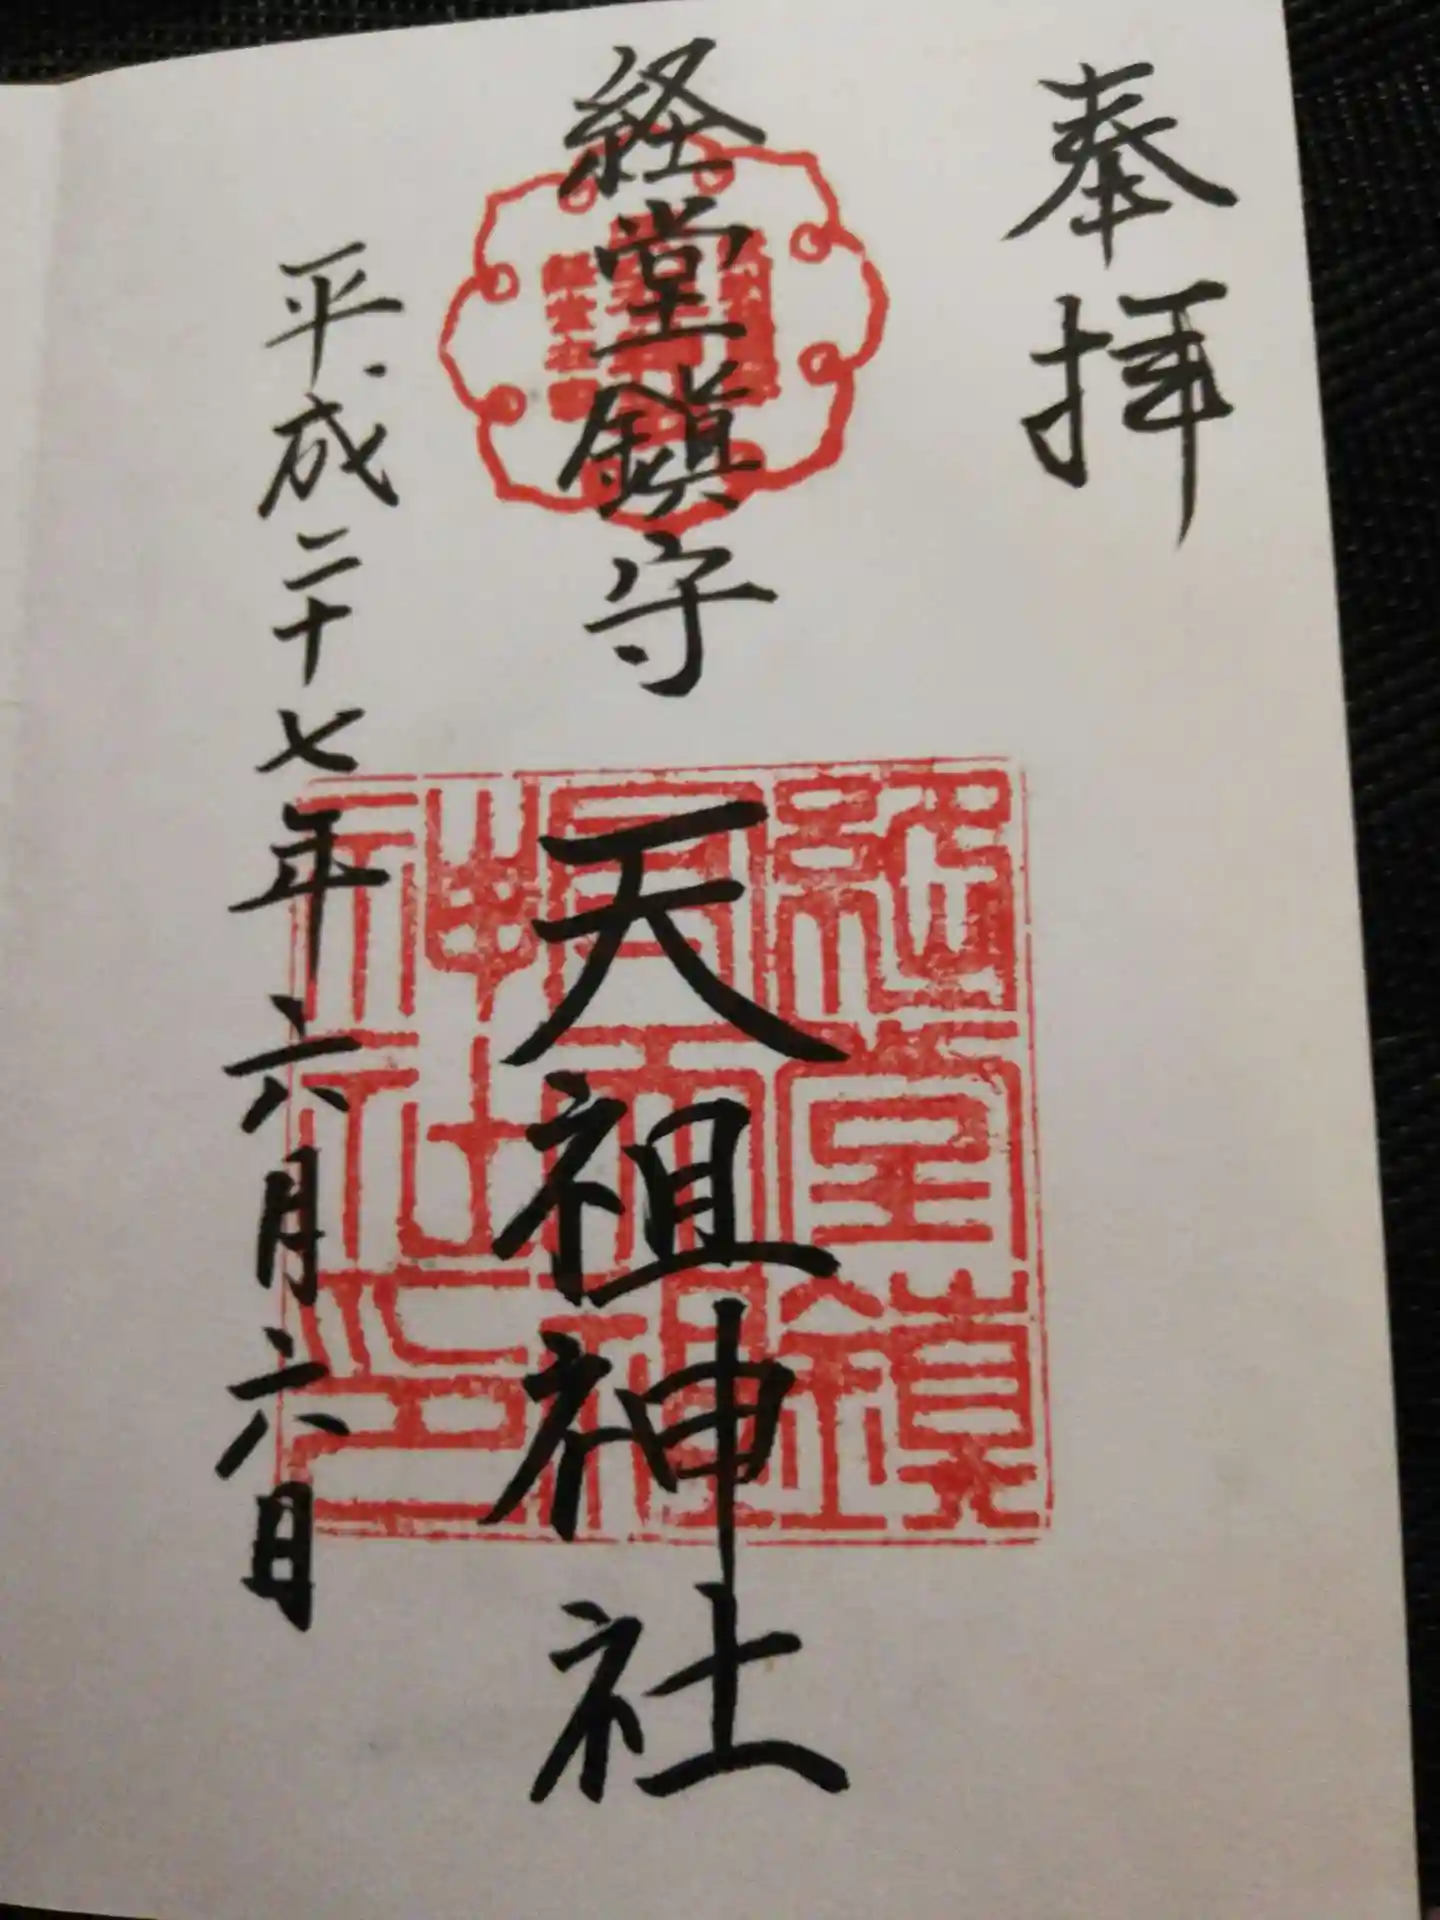 奉拝
経堂鎮守
天祖神社
平成二十七年六月六日
経堂鎮
神社印